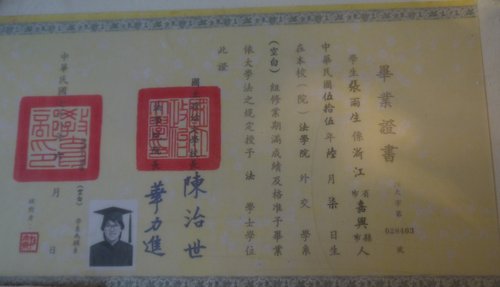 畢業證書
大字第
028403
號
學生張爾生係浙江省嘉興縣人
市 市
中華民國伍拾伍年陸月柒日生
在本校(院)法學院外交學系
(空白)組修業期滿成績及格准予畢業
依大學法之規定授予法學士學位
此證
國立政治大學校長 陳治世
長 華力進
中華民國
月
日
(空白)